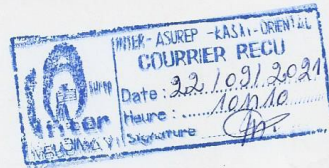 INTER-ASUREP-KASAI-ORIENTAL
COURRIER RECU
Date : 22/09/2021
Heure : 10h10
Signature
Inter